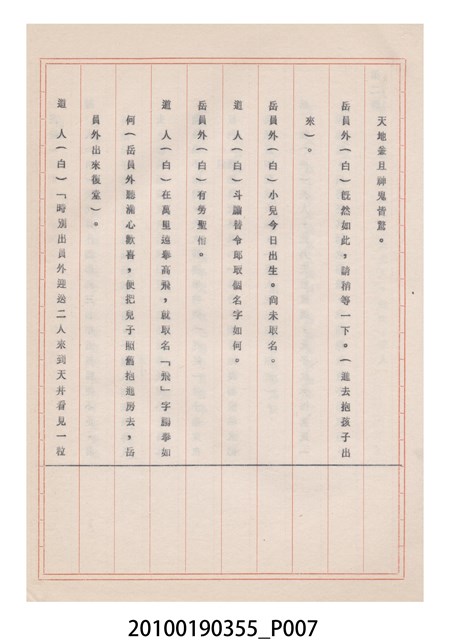 天地並且神鬼皆驚。
岳員外(白)旣然如此,請稍等一下。(進去抱孩子出
來)。
岳員外(白)小兒今日出生。尚未取名。
道　人(白)斗膽替令郎取個名字如何。
岳員外(白)有勞聖僧。
道　人(白)在萬里遠擧高飛,就取名「飛」字鵬擧如
何(岳員外聽滿心歡喜,便把兒子照舊抱進房去,岳
員外出來復堂)。
道　人(白)「時別出員外迎送二人來到天井看見一粒
20100190355_P007